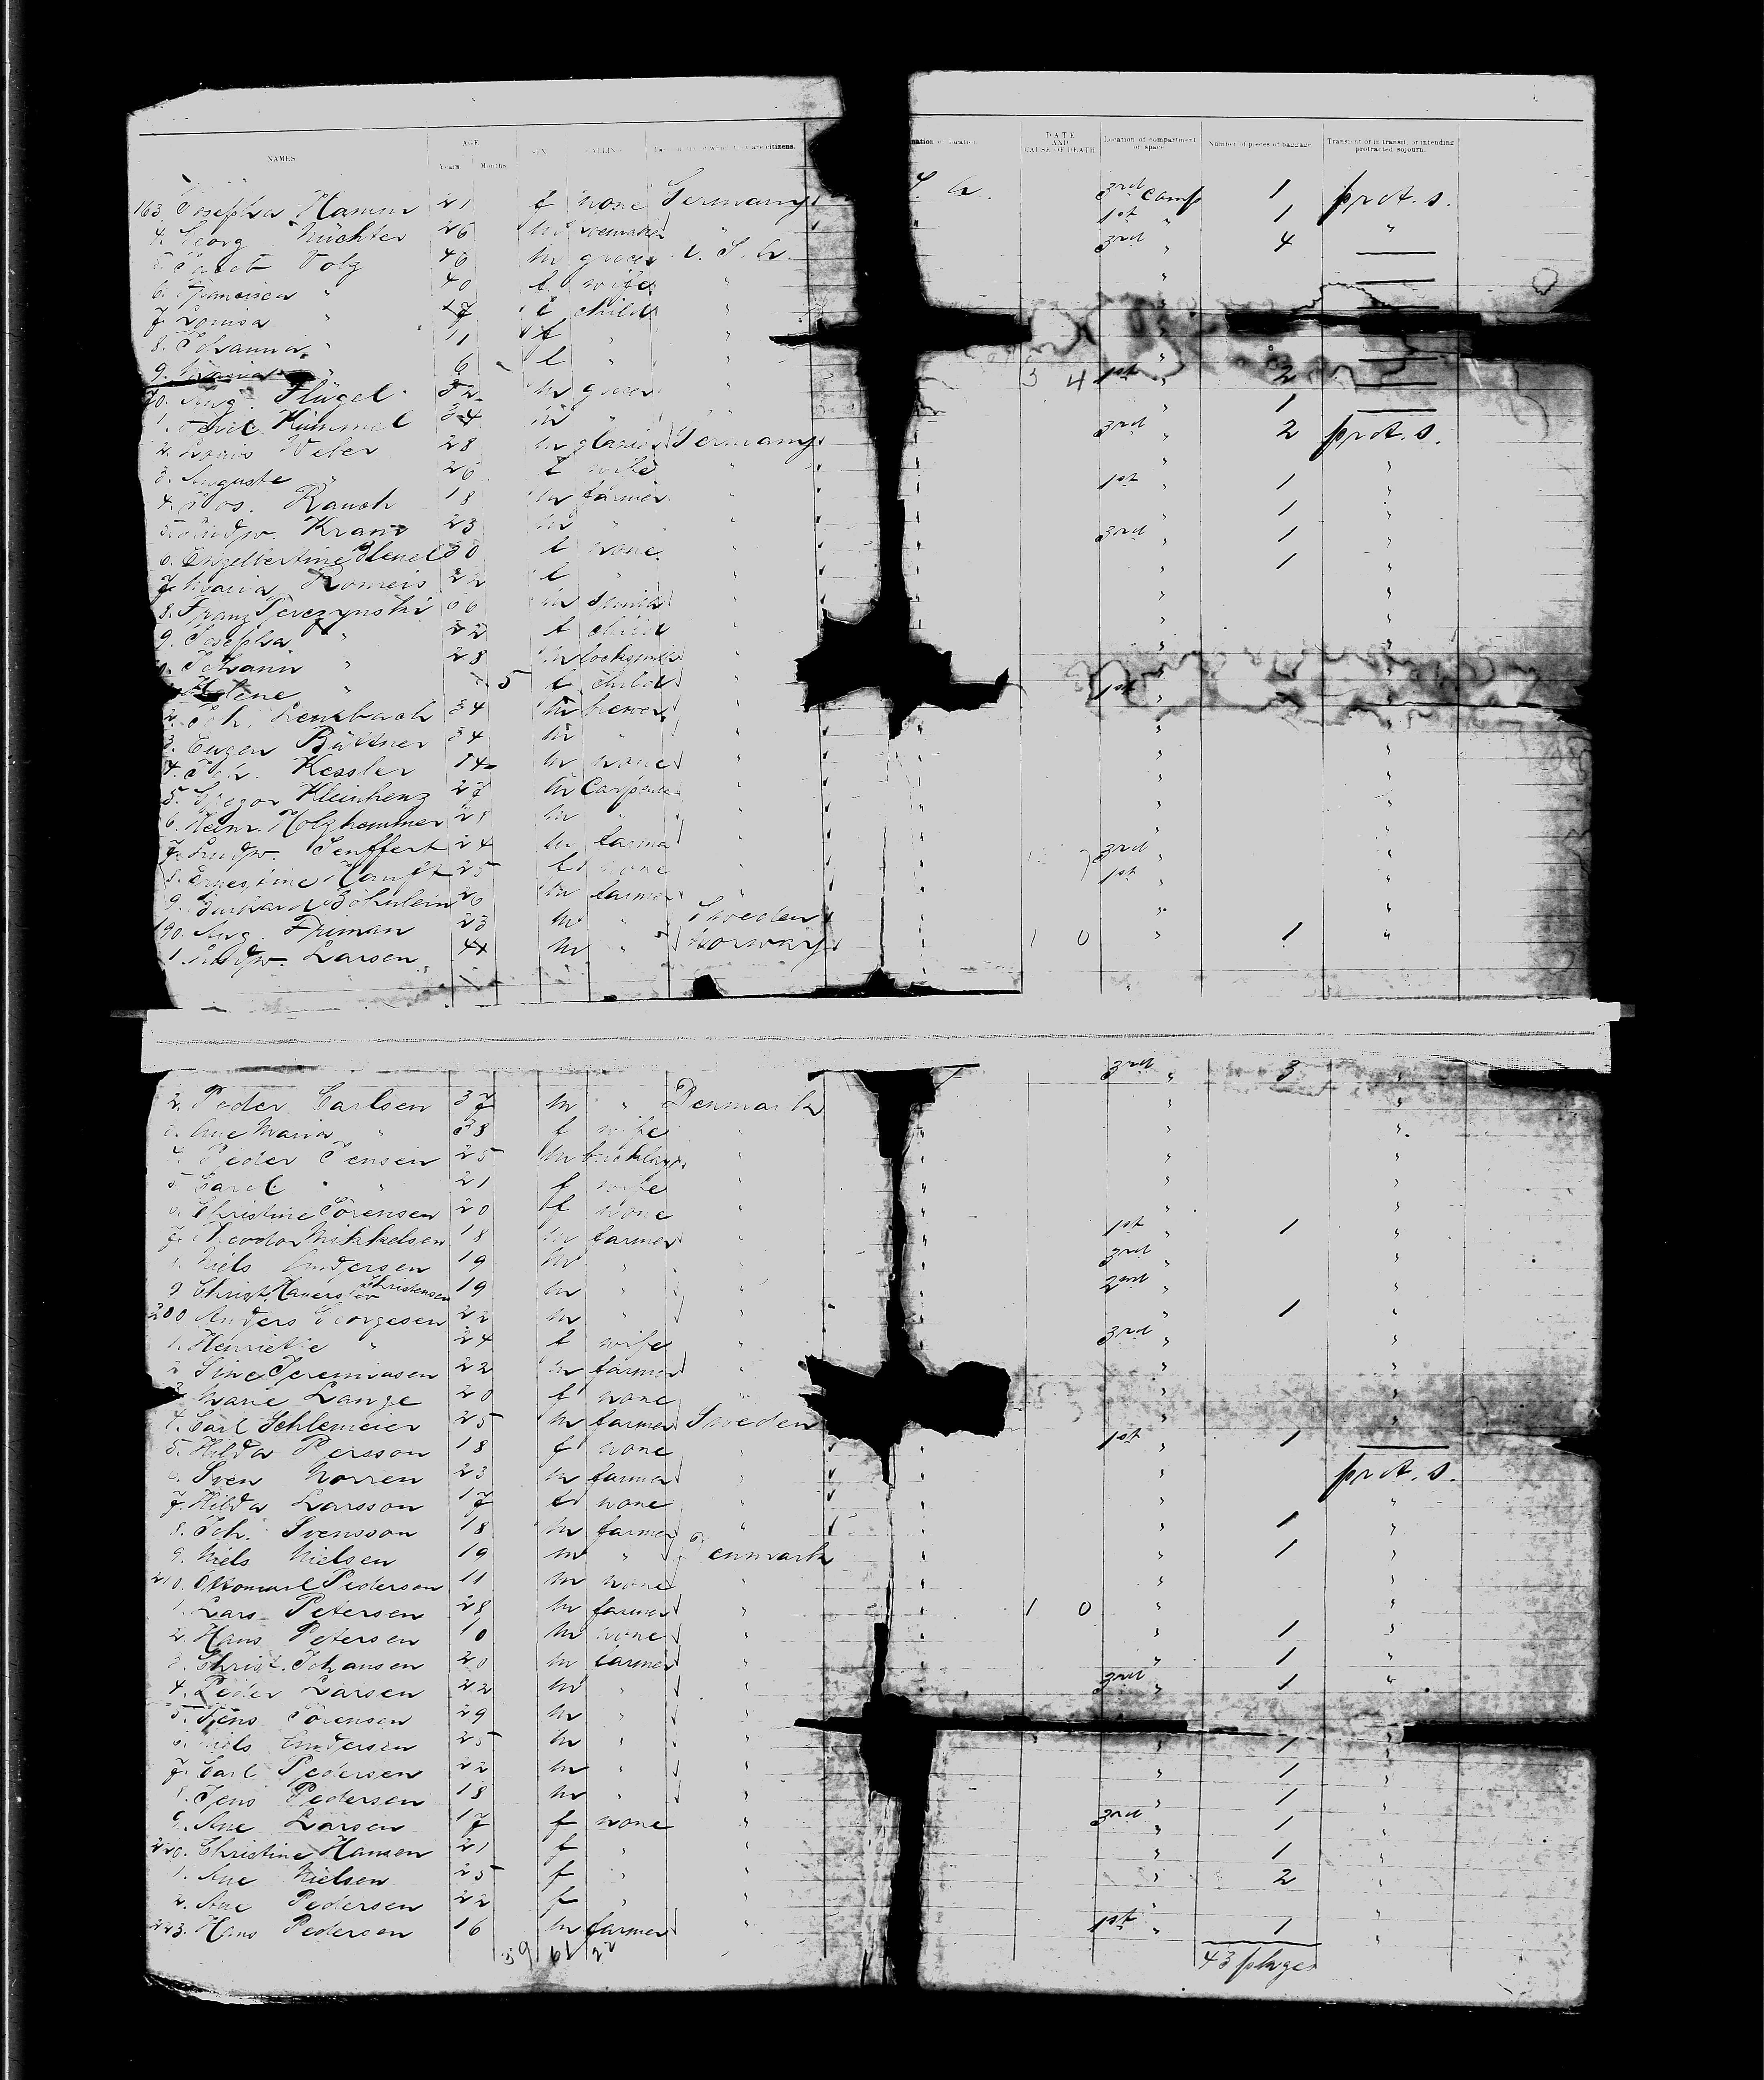 NAMES AGE Years. Months. SEX CALLING are citizens. nation or location DATE AND CAUSE OF DEATH Location of compartment or space Number of pieces of baggage Transient or in transit, or intending protracted sojourn.
163. Josepha Hamm 21 f none Germany S. A. 3rd comp 1 prot. s.
4. Georg Nüchter 26 m 1st " 1 "
5. Volz 46 m grocer U. S. A. 3rd " 4
6. Francisca " 40 f wife "
7. Louisa " 17 f child "
8. Johanna " 11 f " "
9. " 6 f " "
70. Aug. Flügel 32 m grocer " 3 4 1st " 2
1. Kümmel 34 m " 1
2. Louis Weber 28 m glazier Germany 3rd " 2 prot. s.
3. Auguste " 26 f wife " " "
4. Jos. Rauch 18 m farmer " 1st " 1 "
5. Ludw. Kranz 23 m " " " 1 "
6. Engelbertine 30 f none " 3rd " 1 "
7. Maria Romeis 22 f " " " 1 "
8. Franz Perczynski 66 m smith " " "
9. Josepha " 22 f child " " "
0. Johann " 28 m locksmith " " "
1. Helene " 5 f child " "
2. Joh. Lenzbach 34 m brewer " 1st " "
3. Eugen Büttner 34 m " " " "
4. Joh. Kessler 14 m none " " "
5. Gregor Kleinhenz 27 m Carpenter " " "
6. Heinr. Holzhammer 25 m " " " "
7. Ludw. Senffert 24 m farmer " " "
8. Ernestine Hauft 25 f none " 3rd " "
9. Burkard Böhnlein 26 m farmer " 1st " "
190. Aug. Friman 23 m " Sweden " "
1. Ludw. Larsen 44 m " Norway 1 0 " 1 "
2. Peder Carlsen 37 m " Denmark 3rd " 3 "
3. Ane Maria " 38 f wife " " "
4. Peder Jensen 25 m bricklayr. " " "
5. Carol. " 21 f wife " " "
6. Christine Sörensen 20 f none " " "
7. Theodor Mikkelsen 18 m farmer " 1st " 1 "
8. Niels Andersen 19 m " " 3rd " "
9. Christ. Haverslev Christensen 19 m " " 2nd " "
200 Anders Georgesen 22 m " " " 1 "
1. Henriette " 24 f wife " 3rd " "
2. Sine Jeremiasen 22 m farmer " " "
3. Marie Lange 20 f none " " "
4. Carl Schlemeier 25 m farmer Sweden " "
5. Hilda Persson 18 f none " 1st " 1
6. Sven Norren 23 m farmer " " prot. s.
7. Hilda Larsson 17 f none " " "
8. Joh. Svensson 18 m farmer " " 1 "
9. Niels Nielsen 19 m " Denmark " 1 "
210. Pedersen 11 m none " " "
1. Lars Petersen 28 m farmer " 1 0 " "
2. Hans Petersen 10 m none " " 1 "
3. Christ. Johansen 20 m farmer " " 1 "
4. Peder Larsen 22 m " " 3rd " 1 "
5. Jens Sörensen 29 m " "
6. Niels Andersen 25 m " " " 1 "
7. Carl Pedersen 22 m " " " 1 "
8. Jens Pedersen 18 m " " " 1 "
9. Ane Larsen 17 f none " 3rd " 1 "
220. Christine Hansen 21 f " " " 1 "
1. Ane Nielsen 25 f " " " 2 "
2. Ane Pedersen 22 f " " " "
223. Hans Pedersen 16 m farmer " 1st " 1 "
39 61 22
43 pkges